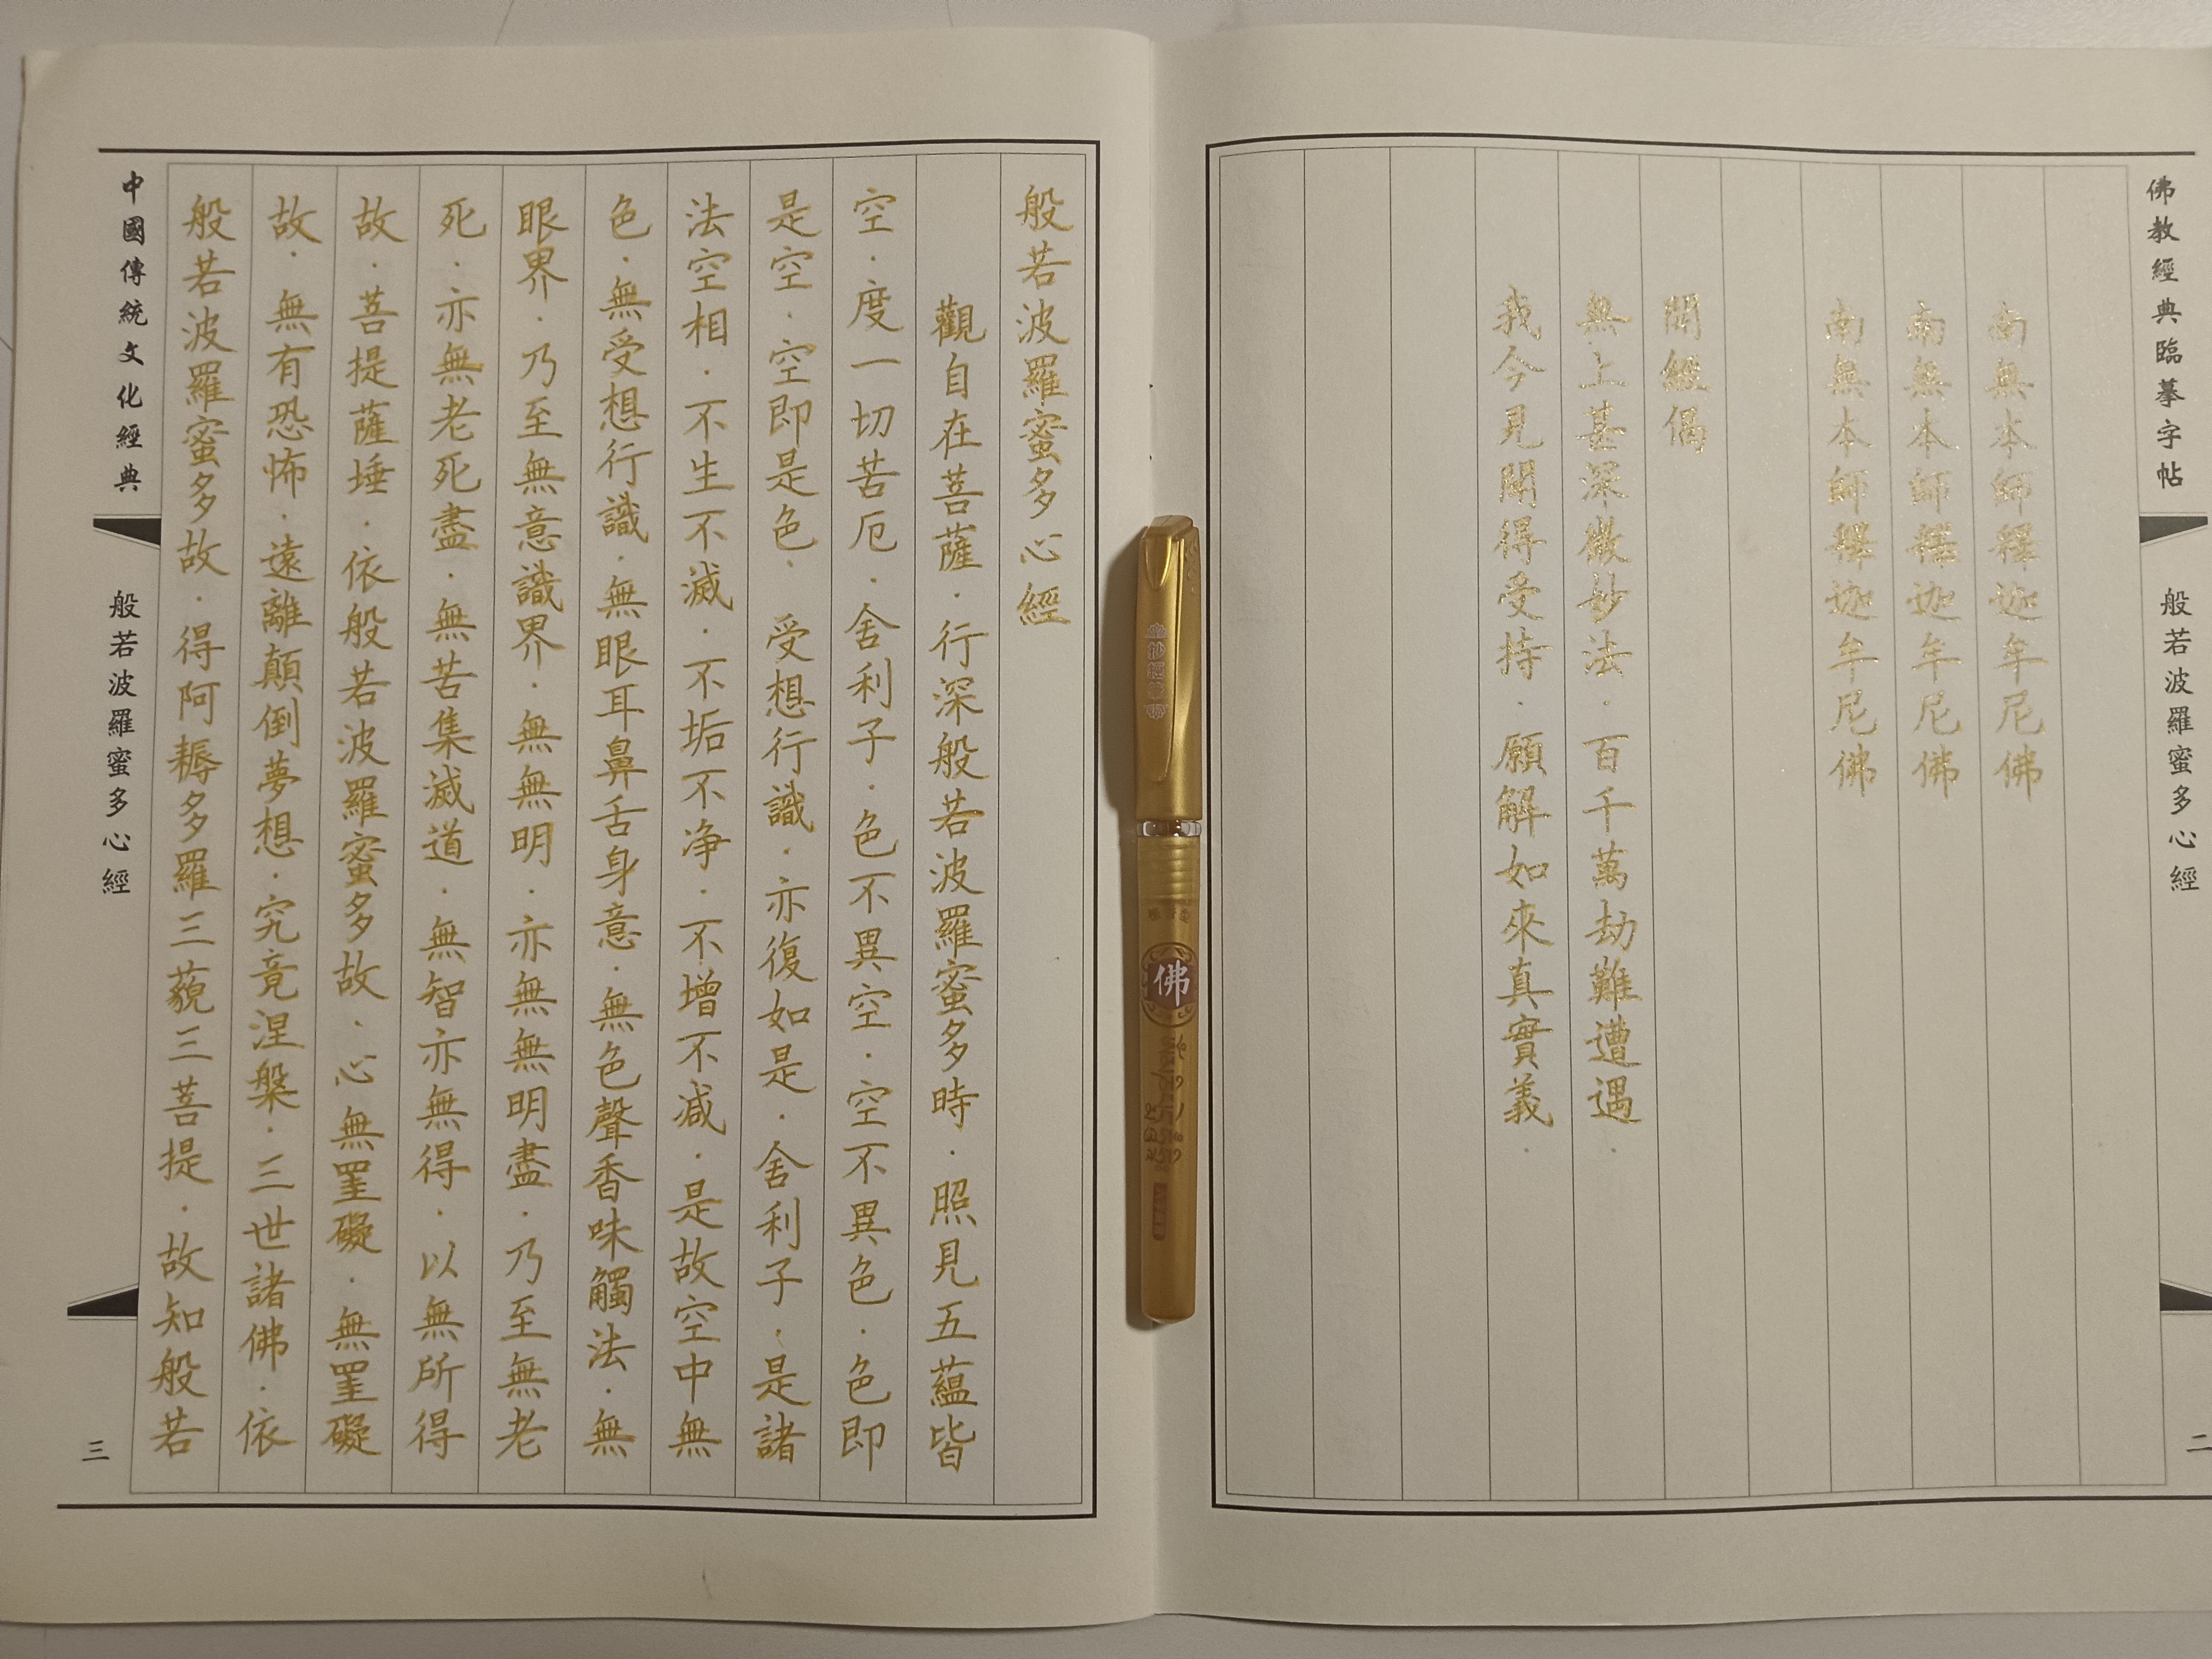 佛教經典臨摹字帖
般若波羅蜜多心經
二
南無本師釋迦牟尼佛
南無本師釋迦牟尼佛
南無本師釋迦牟尼佛
開經偈
無上甚深微妙法·百千萬劫難遭遇·
我今見聞得受持·願解如來真實義·
抄經筆
佛
般若波羅蜜多心經
觀自在菩薩·行深般若波羅蜜多時·照見五蘊皆
空·度一切苦厄·舍利子·色不異空·空不異色·色即
是空·空即是色·受想行識·亦復如是·舍利子·是諸
法空相·不生不滅·不垢不净·不增不减·是故空中無
色·無受想行識·無眼耳鼻舌身意·無色聲香味觸法·無
眼界·乃至無意識界·無無明·亦無無明盡·乃至無老
死·亦無老死盡·無苦集滅道·無智亦無得·以無所得
故·菩提薩埵·依般若波羅蜜多故·心無罣礙·無罣礙
故·無有恐怖·遠離顛倒夢想·究竟涅槃·三世諸佛·依
般若波羅蜜多故·得阿耨多羅三藐三菩提·故知般若
中國傳統文化經典
般若波羅蜜多心經
三